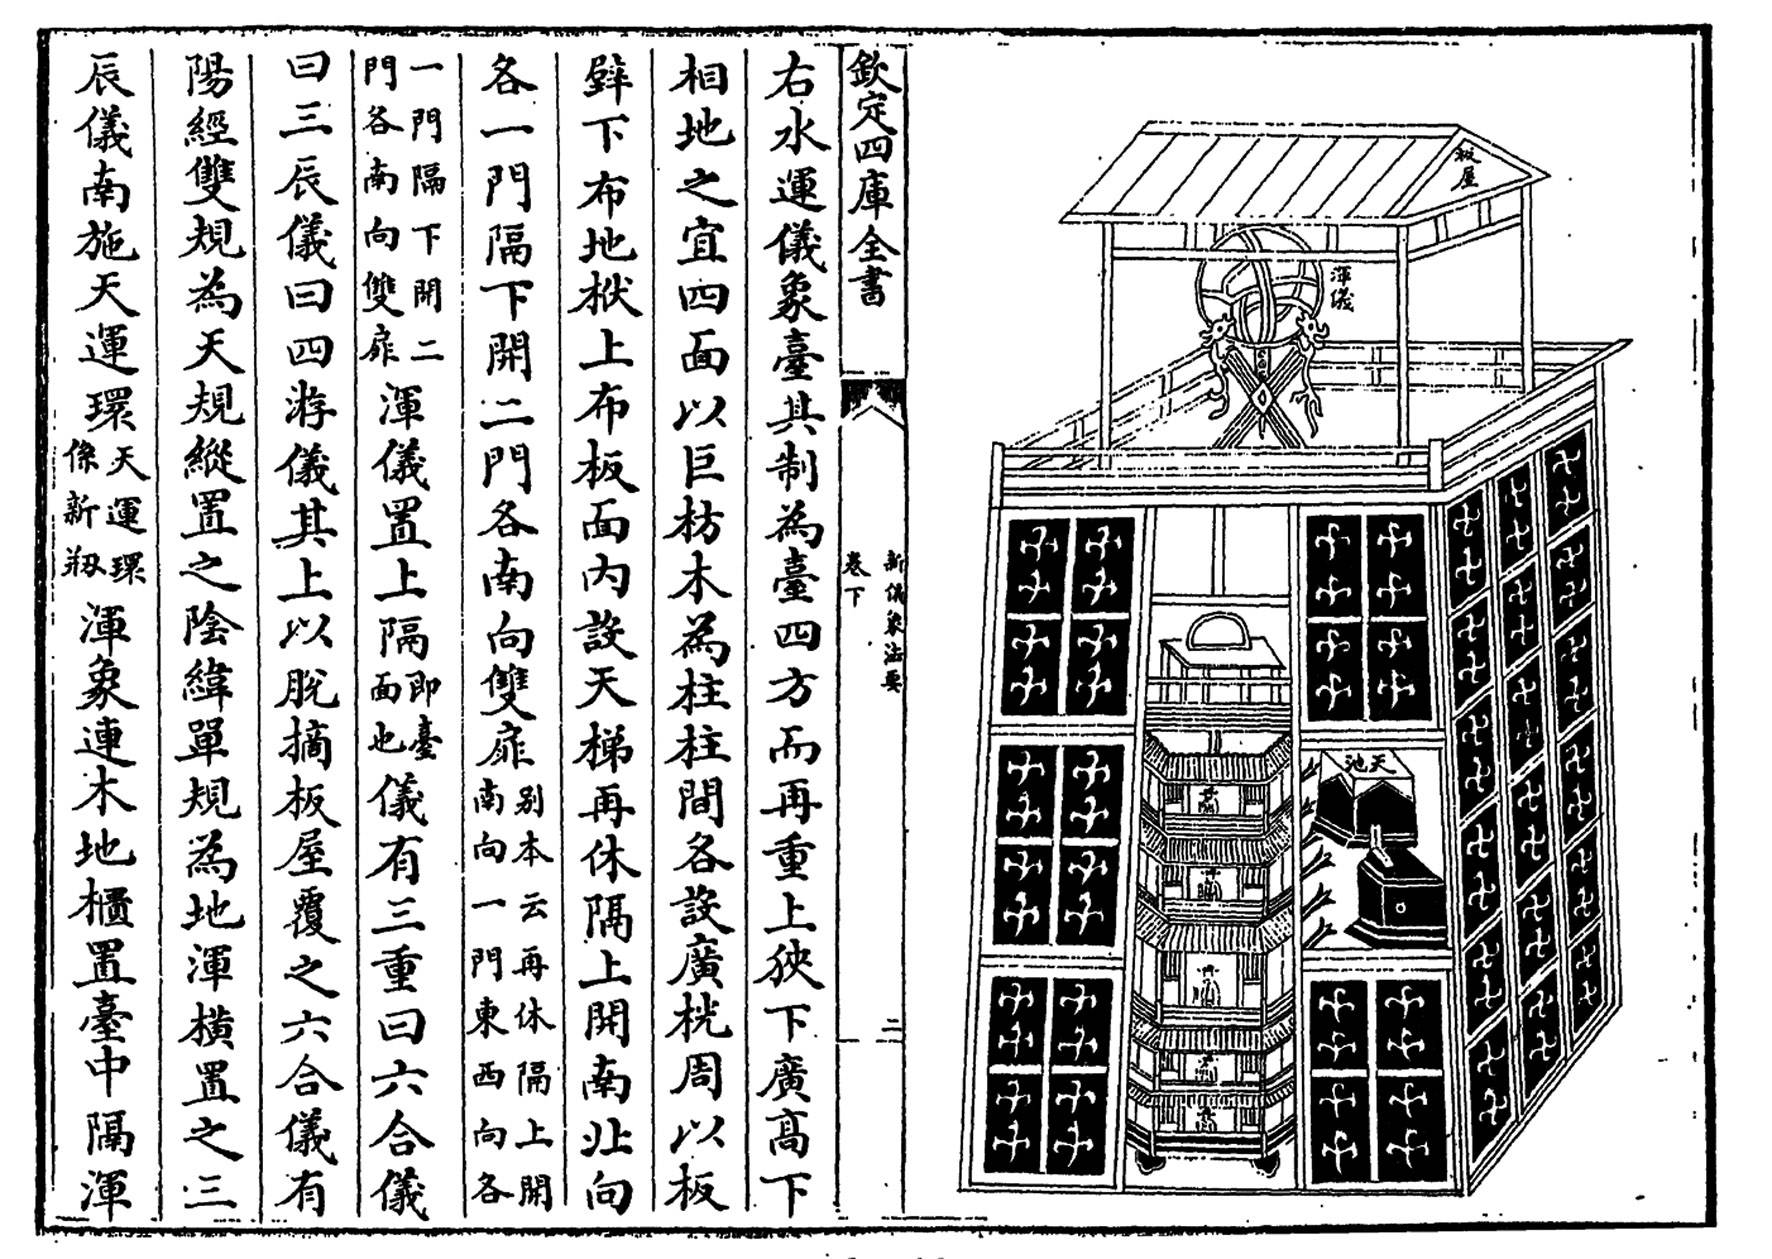 板屋
渾儀
天池
欽定四庫全書
新儀象法要
卷下
二
右水運儀象臺其制為臺四方而再重上狹下廣高下
相地之宜四面以巨枋木為柱柱間各設廣桄周以板
壁下布地栿上布板面内設天梯再休隔上開南北向
各一門隔下開二門各南向雙扉别本云再休隔上開
南向一門東西向各
一門隔下開二
門各南向雙扉渾儀置上隔即臺
面也儀有三重曰六合儀
曰三辰儀曰四游儀其上以脱摘板屋覆之六合儀有
陽經雙規為天規縱置之陰緯單規為地渾横置之三
辰儀南施天運環天運環
係新剏渾象連木地櫃置臺中隔渾